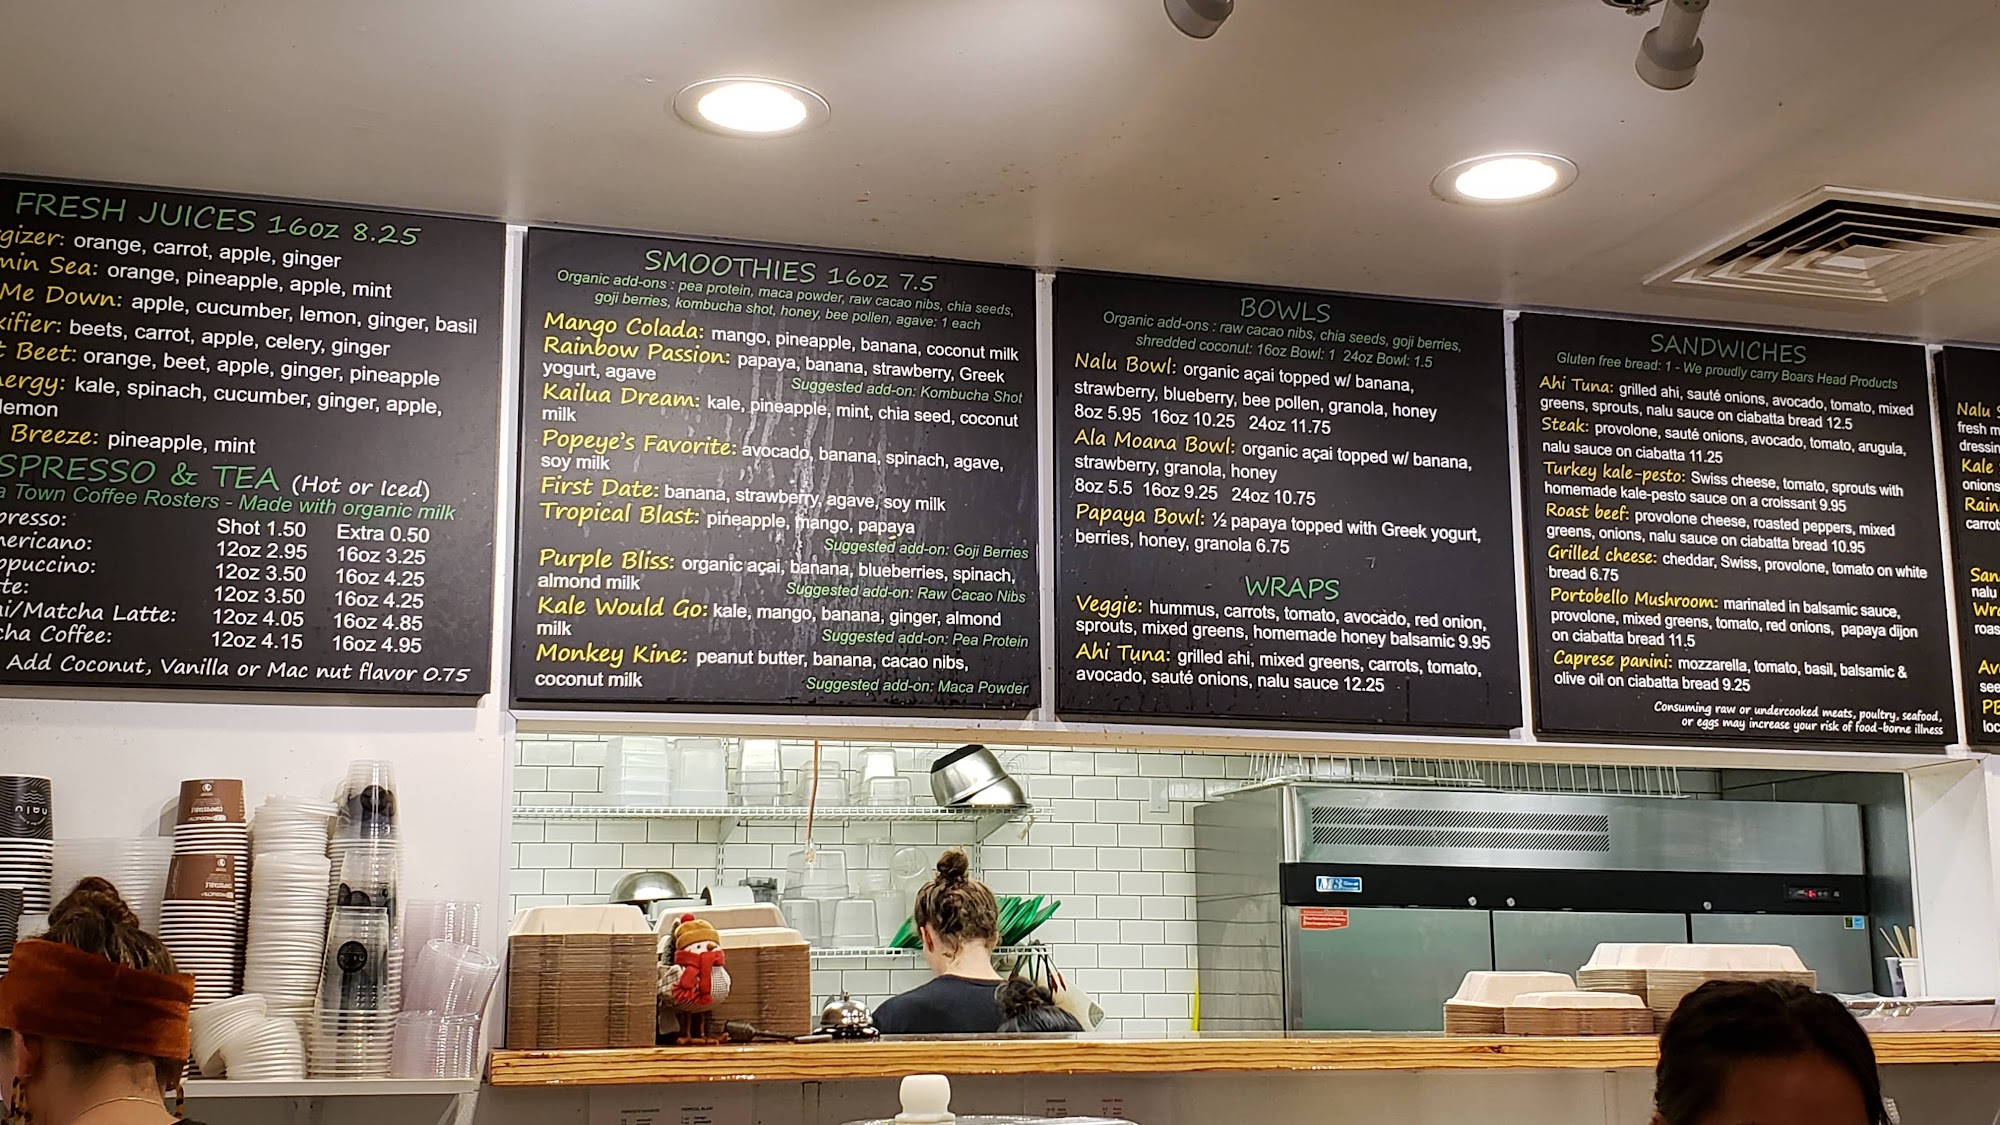 FRESH JUICES 16oz 8.25
gizer: orange, carrot, apple, ginger
min Sea: orange, pineapple, apple, mint
Me Down: apple, cucumber, lemon, ginger, basil
xifier: beets, carrot, apple, celery, ginger
t Beet: orange, beet, apple, ginger, pineapple
nergy: kale, spinach, cucumber, ginger, apple,
lemon
Breeze: pineapple, mint
SPRESSO & TEA (Hot or Iced)
a Town Coffee Rosters - Made with organic milk
presso: Shot 1.50 Extra 0.50
mericano: 12oz 2.95 16oz 3.25
ppuccino: 12oz 3.50 16oz 4.25
tte: 12oz 3.50 16oz 4.25
ai/Matcha Latte: 12oz 4.05 16oz 4.85
cha Coffee: 12oz 4.15 16oz 4.95
Add Coconut, Vanilla or Mac nut flavor 0.75
SMOOTHIES 16oz 7.5
Organic add-ons : pea protein, maca powder, raw cacao nibs, chia seeds,
goji berries, kombucha shot, honey, bee pollen, agave: 1 each
Mango Colada: mango, pineapple, banana, coconut milk
Rainbow Passion: papaya, banana, strawberry, Greek
yogurt, agave
Suggested add-on: Kombucha Shot
Kailua Dream: kale, pineapple, mint, chia seed, coconut
milk
Popeye's Favorite: avocado, banana, spinach, agave,
soy milk
First Date: banana, strawberry, agave, soy milk
Tropical Blast: pineapple, mango, papaya
Suggested add-on: Goji Berries
Purple Bliss: organic açai, banana, blueberries, spinach,
almond milk
Suggested add-on: Raw Cacao Nibs
Kale Would Go: kale, mango, banana, ginger, almond
milk
Suggested add-on: Pea Protein
Monkey Kine: peanut butter, banana, cacao nibs,
coconut milk
Suggested add-on: Maca Powder
BOWLS
Organic add-ons : raw cacao nibs, chia seeds, goji berries,
shredded coconut: 16oz Bowl: 1 24oz Bowl: 1.5
Nalu Bowl: organic açai topped w/ banana,
strawberry, blueberry, bee pollen, granola, honey
8oz 5.95 16oz 10.25 24oz 11.75
Ala Moana Bowl: organic açai topped w/ banana,
strawberry, granola, honey
8oz 5.5 16oz 9.25 24oz 10.75
Papaya Bowl: ½ papaya topped with Greek yogurt,
berries, honey, granola 6.75
WRAPS
Veggie: hummus, carrots, tomato, avocado, red onion,
sprouts, mixed greens, homemade honey balsamic 9.95
Ahi Tuna: grilled ahi, mixed greens, carrots, tomato,
avocado, sauté onions, nalu sauce 12.25
SANDWICHES
Gluten free bread: 1 - We proudly carry Boars Head Products
Ahi Tuna: grilled ahi, sauté onions, avocado, tomato, mixed
greens, sprouts, nalu sauce on ciabatta bread 12.5
Steak: provolone, sauté onions, avocado, tomato, arugula,
nalu sauce on ciabatta 11.25
Turkey kale-pesto: Swiss cheese, tomato, sprouts with
homemade kale-pesto sauce on a croissant 9.95
Roast beef: provolone cheese, roasted peppers, mixed
greens, onions, nalu sauce on ciabatta bread 10.95
Grilled cheese: cheddar, Swiss, provolone, tomato on white
bread 6.75
Portobello Mushroom: marinated in balsamic sauce,
provolone, mixed greens, tomato, red onions, papaya dijon
on ciabatta bread 11.5
Caprese panini: mozzarella, tomato, basil, balsamic &
olive oil on ciabatta bread 9.25
Consuming raw or undercooked meats, poultry, seafood,
or eggs may increase your risk of food-borne illness
Nalu S
fresh m
dressin
Kale
onions
Rain
carrot
San
nalu
Wra
roas
Av
see
PB
loc
nalu